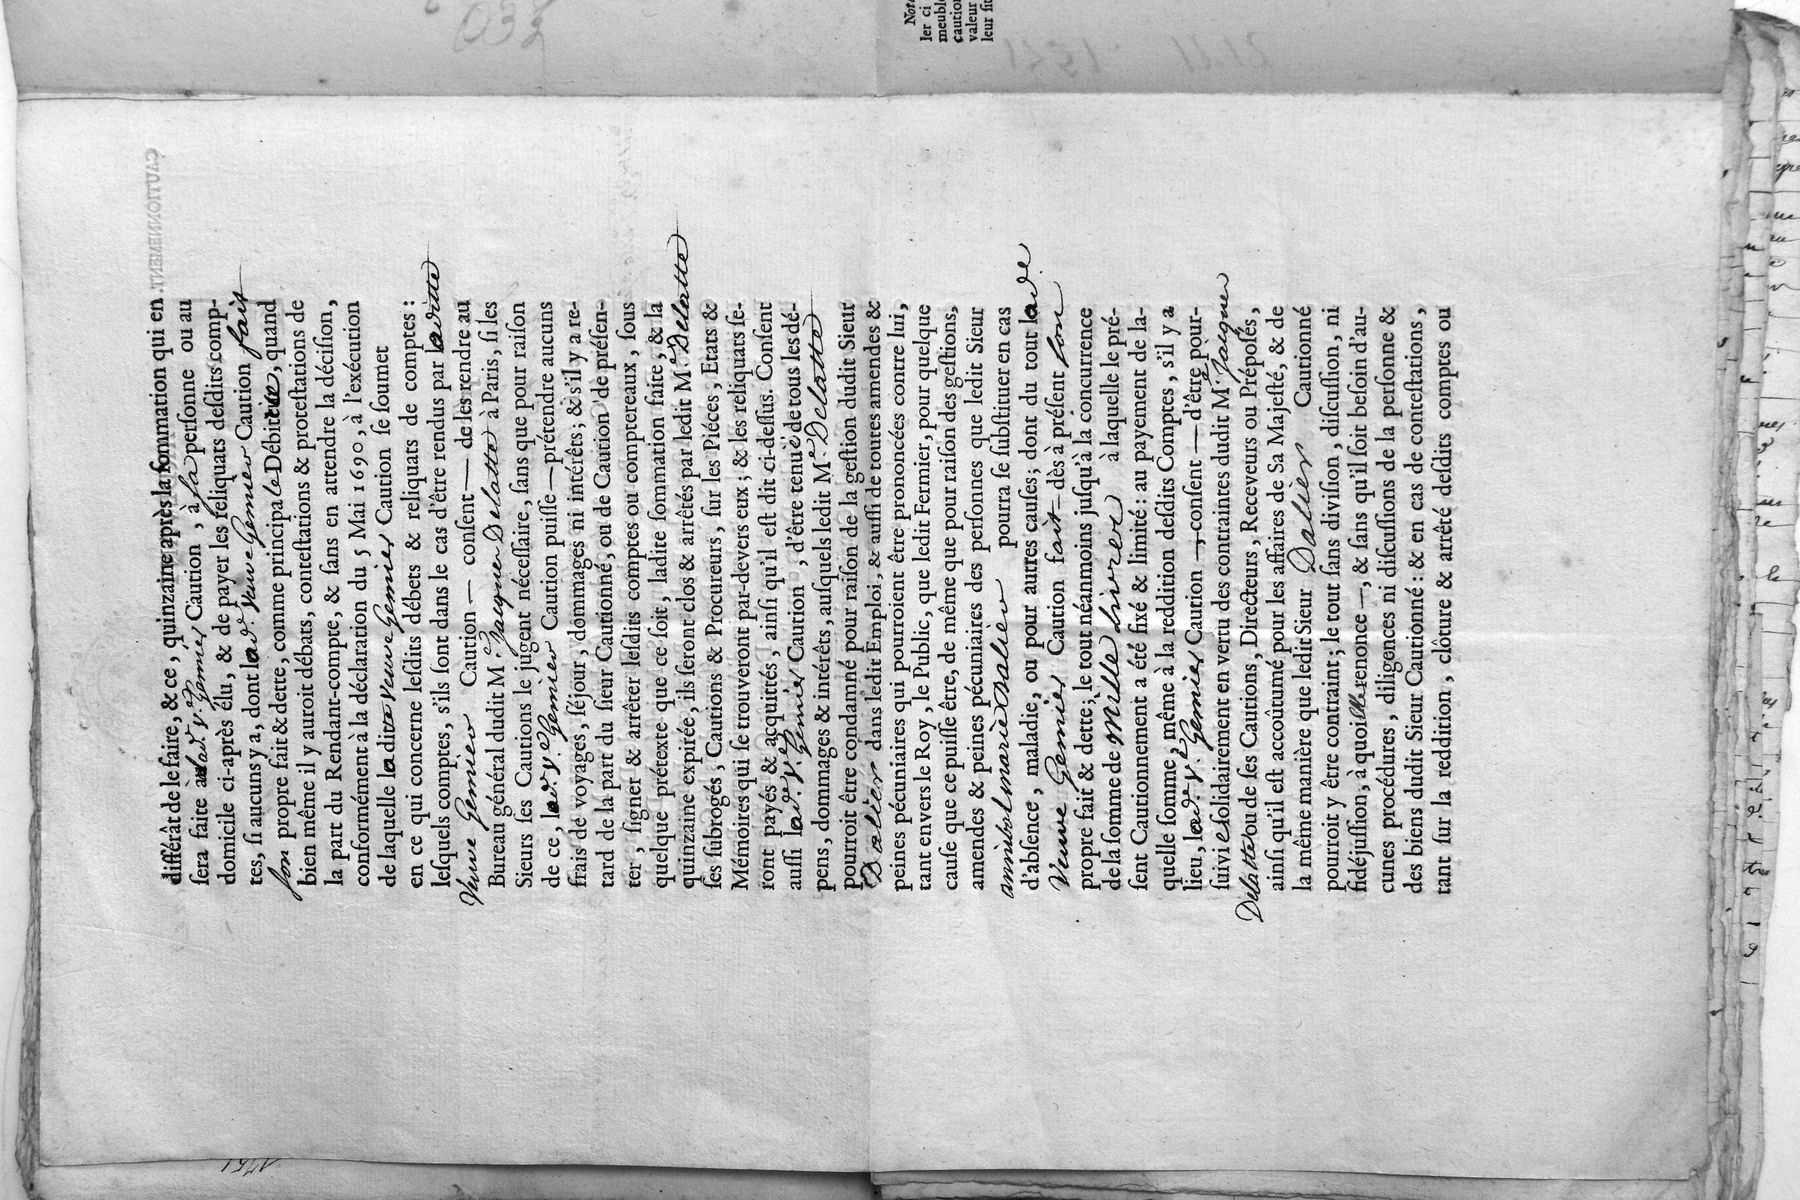 différât de le faire, & ce, quinzaine après la ſommation qui en
ſera faite à lad. Ve. Gemier Caution, à ſa perſonne ou au
domicile ci-après élu, & de payer les reliquats deſdits comp-
tes, ſi aucuns y a, dont lad. Veuve Gemier Caution fait
ſon propre fait & dette, comme principale Débitrice, quand
bien même il y auroit débats, conteſtations & proteſtations de
la part du Rendant-compte, & ſans en attendre la déciſion,
conformément à la déclaration du 5 Mai 1690, à l'exécution
de laquelle la ditte Veuve Gemier Caution ſe ſoumet
en ce qui concerne leſdits débets & reliquats de comptes:
leſquels comptes, s'ils ſont dans le cas d'être rendus par laditte
Veuve Gemier Caution — conſent — de les rendre au
Bureau général dudit Me. Jacques Delatte à Paris, ſi les
Sieurs ſes Cautions le jugent néceſſaire, ſans que pour raiſon
de ce, lad. Ve. Gemier Caution puiſſe — prétendre aucuns
frais de voyages, ſéjour, dommages ni intérêts; & s'il y a re-
tard de la part du ſieur Cautionné, ou de Caution de préſen-
ter, ſigner & arrêter leſdits comptes ou comptereaux, ſous
quelque prétexte que ce ſoit, ladite ſommation faite, & la
quinzaine expirée, ils ſeront clos & arrêtés par ledit Me. Delatte
ſes ſubrogés, Cautions & Procureurs, ſur les Piéces, Etats &
Mémoires qui ſe trouveront par-devers eux; & les reliquats ſe-
ront payés & acquittés, ainſi qu'il eſt dit ci-deſſus. Conſent
auſſi lad. Ve. Gemier Caution, d'être tenue de tous les dé-
pens, dommages & intérêts, auſquels ledit Me. Delatte
pourroit être condamné pour raiſon de la geſtion dudit Sieur
Dalier dans ledit Emploi, & auſſi de toutes amendes &
peines pécuniaires qui pourroient être prononcées contre lui,
tant envers le Roy, le Public, que ledit Fermier, pour quelque
cauſe que ce puiſſe être, de même que pour raiſon des geſtions,
amendes & peines pécuniaires des perſonnes que ledit Sieur
annibal marie Dalier pourra ſe ſubſtituer en cas
d'abſence, maladie, ou pour autres cauſes; dont du tout lade.
Veuve Gemier Caution fait — dès à préſent ſon
propre fait & dette; le tout néanmoins juſqu'à la concurrence
de la ſomme de Mille Livres à laquelle le pré-
ſent Cautionnement a été fixé & limité: au payement de la-
quelle ſomme, même à la reddition deſdits Comptes, s'il y a
lieu, lad. Ve. Gemier Caution —, conſent — d'être pour-
ſuivie ſolidairement en vertu des contraintes dudit Me. Jacques
Delatte ou de ſes Cautions, Directeurs, Receveurs ou Prépoſés,
ainſi qu'il eſt accoûtumé pour les affaires de Sa Majeſté, & de
la même manière que ledit Sieur Dalier Cautionné
pourroit y être contraint; le tout ſans diviſion, diſcuſſion, ni
fidéjuſſion, à quoi elle renonce —, & ſans qu'il ſoit beſoin d'au-
cunes procédures, diligences ni diſcuſſions de la perſonne &
des biens dudit Sieur Cautionné: & en cas de conteſtations,
tant ſur la reddition, clôture & arrêté deſdits comptes ou